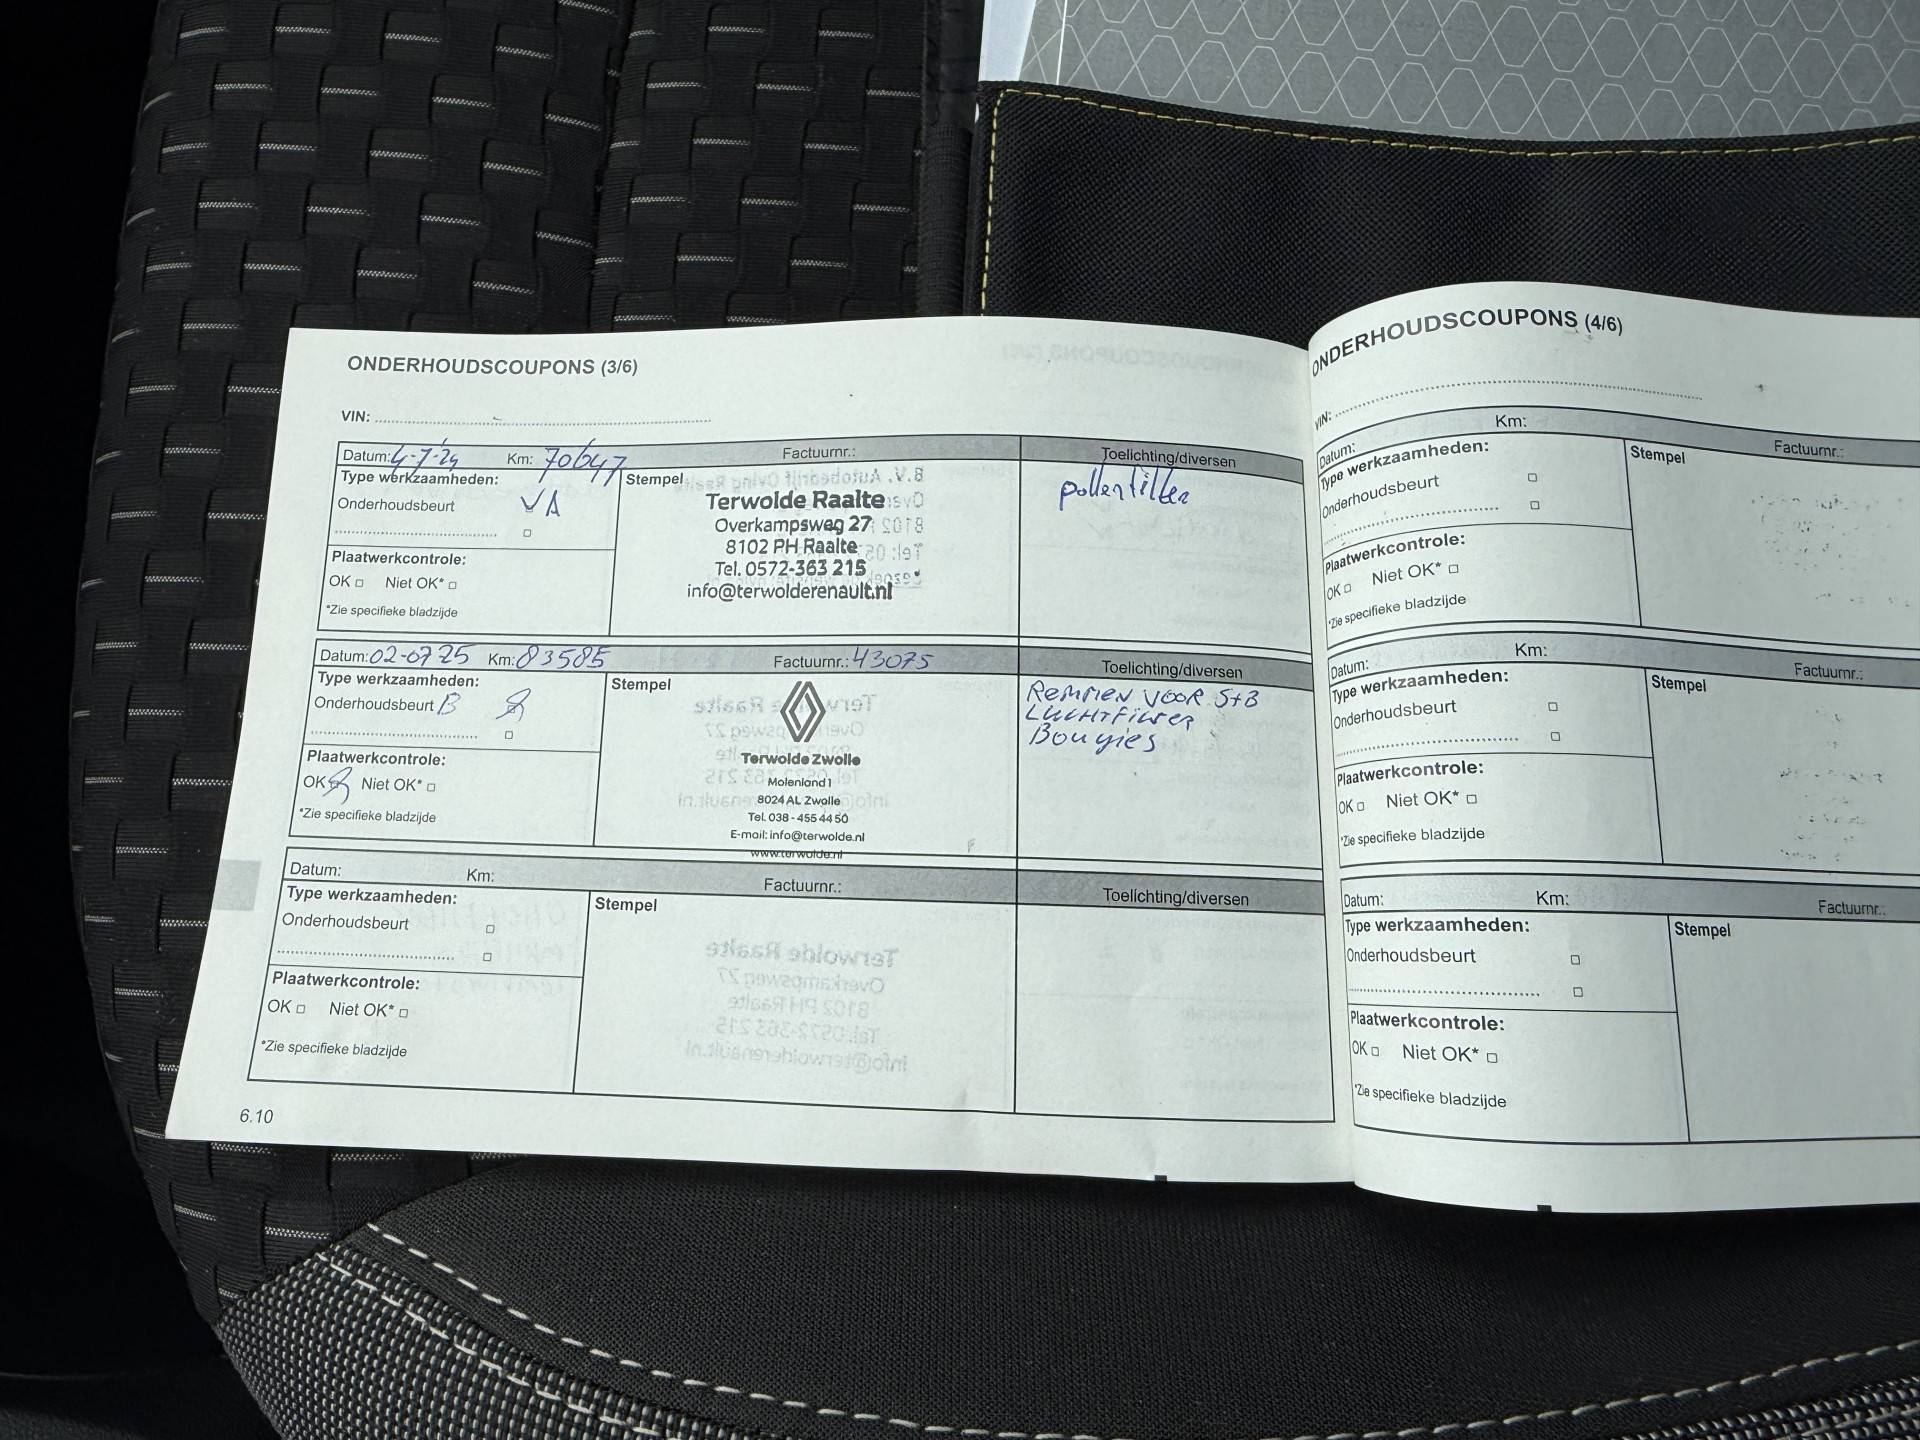 ONDERHOUDSCOUPONS (3/6)
VIN:
Datum: 4-7-24 Km: 70647 Factuurnr.: Toelichting/diversen
Type werkzaamheden:
Onderhoudsbeurt VA
Plaatwerkcontrole:
OK □ Niet OK* □
*Zie specifieke bladzijde
Stempel
Terwolde Raalte
Overkampsweg 27
8102 PH Raalte
Tel. 0572-363 215
info@terwolderenault.nl
pollenfilter
Datum: 02-07-25 Km: 83585 Factuurnr.: 43075 Toelichting/diversen
Type werkzaamheden:
Onderhoudsbeurt B
Plaatwerkcontrole:
OK Niet OK* □
*Zie specifieke bladzijde
Stempel
Terwolde Zwolle
Molenland 1
8024 AL Zwolle
Tel. 038 - 455 44 50
E-mail: info@terwolde.nl
www.terwolde.nl
Remmen voor S+B
Luchtfilter
Bougies
Datum: Km: Factuurnr.: Toelichting/diversen
Type werkzaamheden:
Onderhoudsbeurt □
Plaatwerkcontrole:
OK □ Niet OK* □
*Zie specifieke bladzijde
Stempel
6.10
ONDERHOUDSCOUPONS (4/6)
VIN:
Datum: Km: Factuurnr.:
Type werkzaamheden:
Onderhoudsbeurt □
Plaatwerkcontrole:
OK □ Niet OK* □
*Zie specifieke bladzijde
Stempel
Datum: Km: Factuurnr.:
Type werkzaamheden:
Onderhoudsbeurt □
Plaatwerkcontrole:
OK □ Niet OK* □
*Zie specifieke bladzijde
Stempel
Datum: Km: Factuurnr.:
Type werkzaamheden:
Onderhoudsbeurt □
Plaatwerkcontrole:
OK □ Niet OK* □
*Zie specifieke bladzijde
Stempel